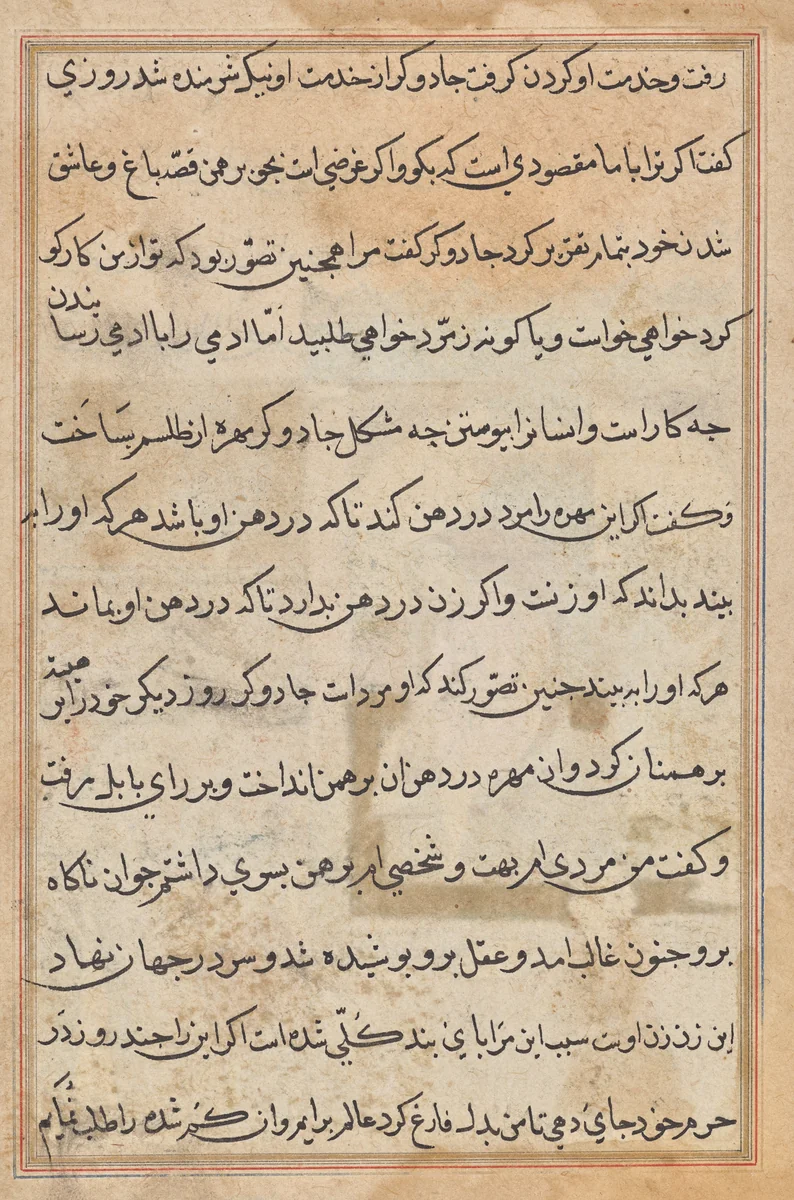 رفت و خدمت او کردن کرفت جادوکر از خدمت او نیک شرمنده شد روزی
کفت اکر ترا باما مقصودی است که بکو و اکر غرضی است بجو برهمن قصّه باغ و عاشق
شدن خود بتمام تقریر کرد جادوکر کفت مرا همجنین تصوّر بود که تو از من کار کو
کرد خواهی خواست و یا کونه زمرّد خواهی طلبید امّا ادمی را با ادمی رسانیدن
جه کار است و انسانرا بیوستن جه مشکل جادوکر مهره از طلسم بساخت
و کفت اکر این مهره را مرد در دهن کند تا که در دهن او باشد هر که او را به
بیند بداند که او زنست و اکر زن در دهن بدارد تا که در دهن او بماند
هر که او را به بیند جنین تصوّر کند که او مردست جادوکر روز دیکر خود را بر هیئة
برهمنان کرد و ان مهره در دهن ان برهمن انداخت و بر رای بابل رفت
و کفت من مردی ام بهت و شخصی ام برهمن بسری داشتم جوان ناکاه
برو جنون غالب امد و عقل برو بوشیده شد و سر در جهان نهاد
این زن زن اوست سبب این مرا پای بند کلّی شده است اکر این را جند روز در
حرم خود جای دهی تا من بدل فارغ کرد عالم برایم و ان کم شده را طلب نمایم